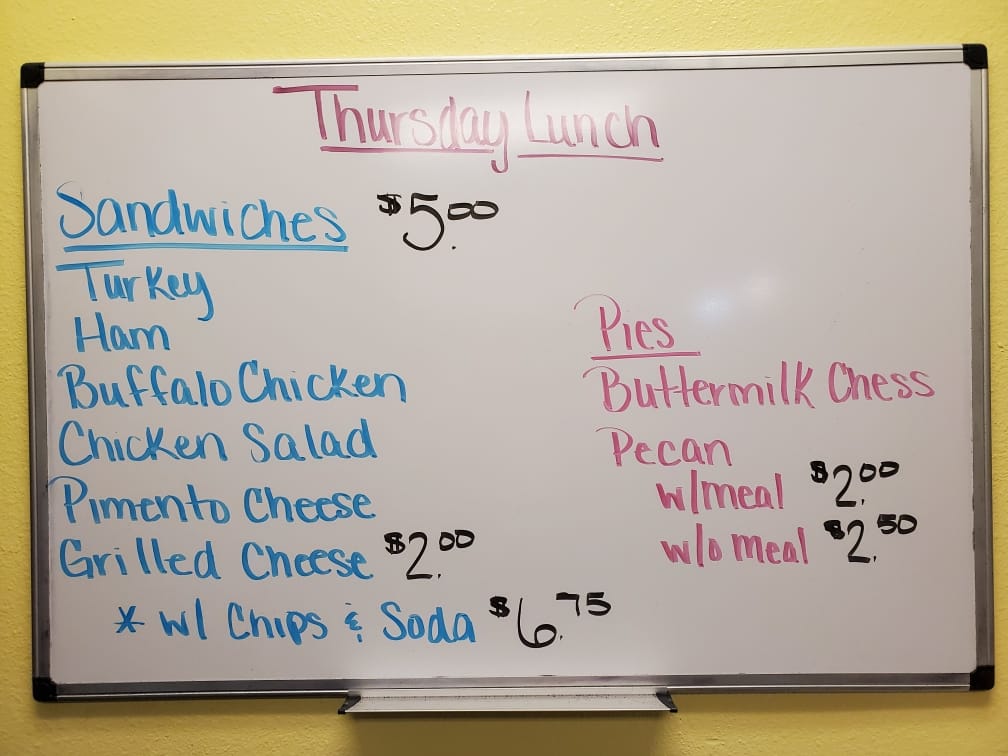 Thursday Lunch
Sandwiches $5.00
Turkey
Ham
Buffalo Chicken
Chicken Salad
Pimento Cheese
Grilled Cheese $2.00
* w/ Chips & Soda $6.75
Pies
Buttermilk Chess
Pecan
w/meal $2.00
w/o meal $2.50